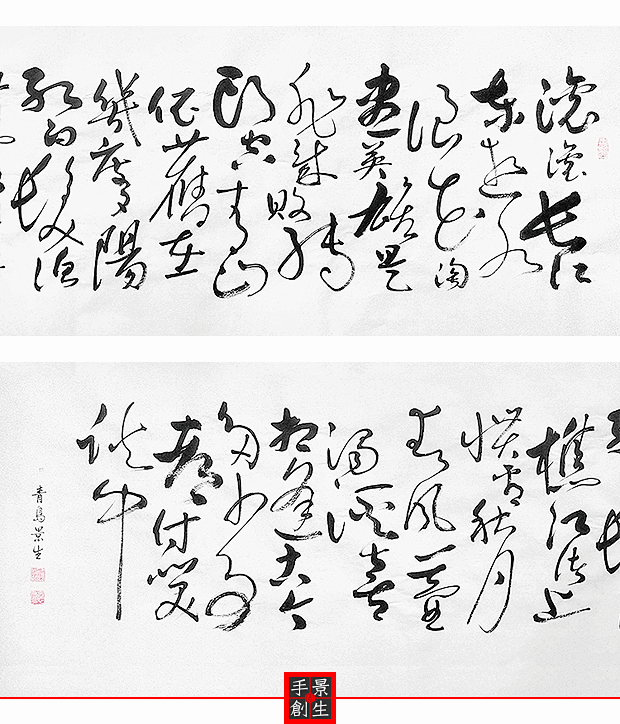 滾滾長江
東逝水
浪花淘
盡英雄是
非成敗轉
頭空青山
依舊在
幾度夕陽
紅白髮漁
樵江渚上
慣看秋月
春風一壺
濁酒喜
相逢古今
多少事
都付笑
談中
青鳥景生
景生
手創